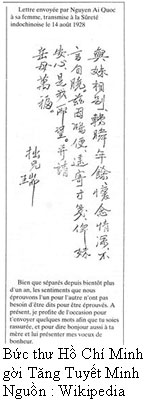 Lettre envoyée par Nguyen Ai Quoc
à sa femme, transmise à la Sûreté
indochinoise le 14 août 1928
與妹相別轉瞬年餘懷念情深不
言自曉茲因鴻便遙寄寸箋俾妹
安心是我所望并請
岳母萬福
拙兄
瑞
Bien que séparés depuis bientôt plus
d'un an, les sentiments que nous
éprouvons l'un pour l'autre n'ont pas
besoin d'être dits pour être éprouvés. A
présent, je profite de l'occasion pour
t'envoyer quelques mots afin que tu sois
rassurée, et pour dire bonjour aussi à ta
mère et lui présenter mes voeux de
bonheur.
Bức thư Hồ Chí Minh
gời Tăng Tuyết Minh
Nguồn : Wikipedia